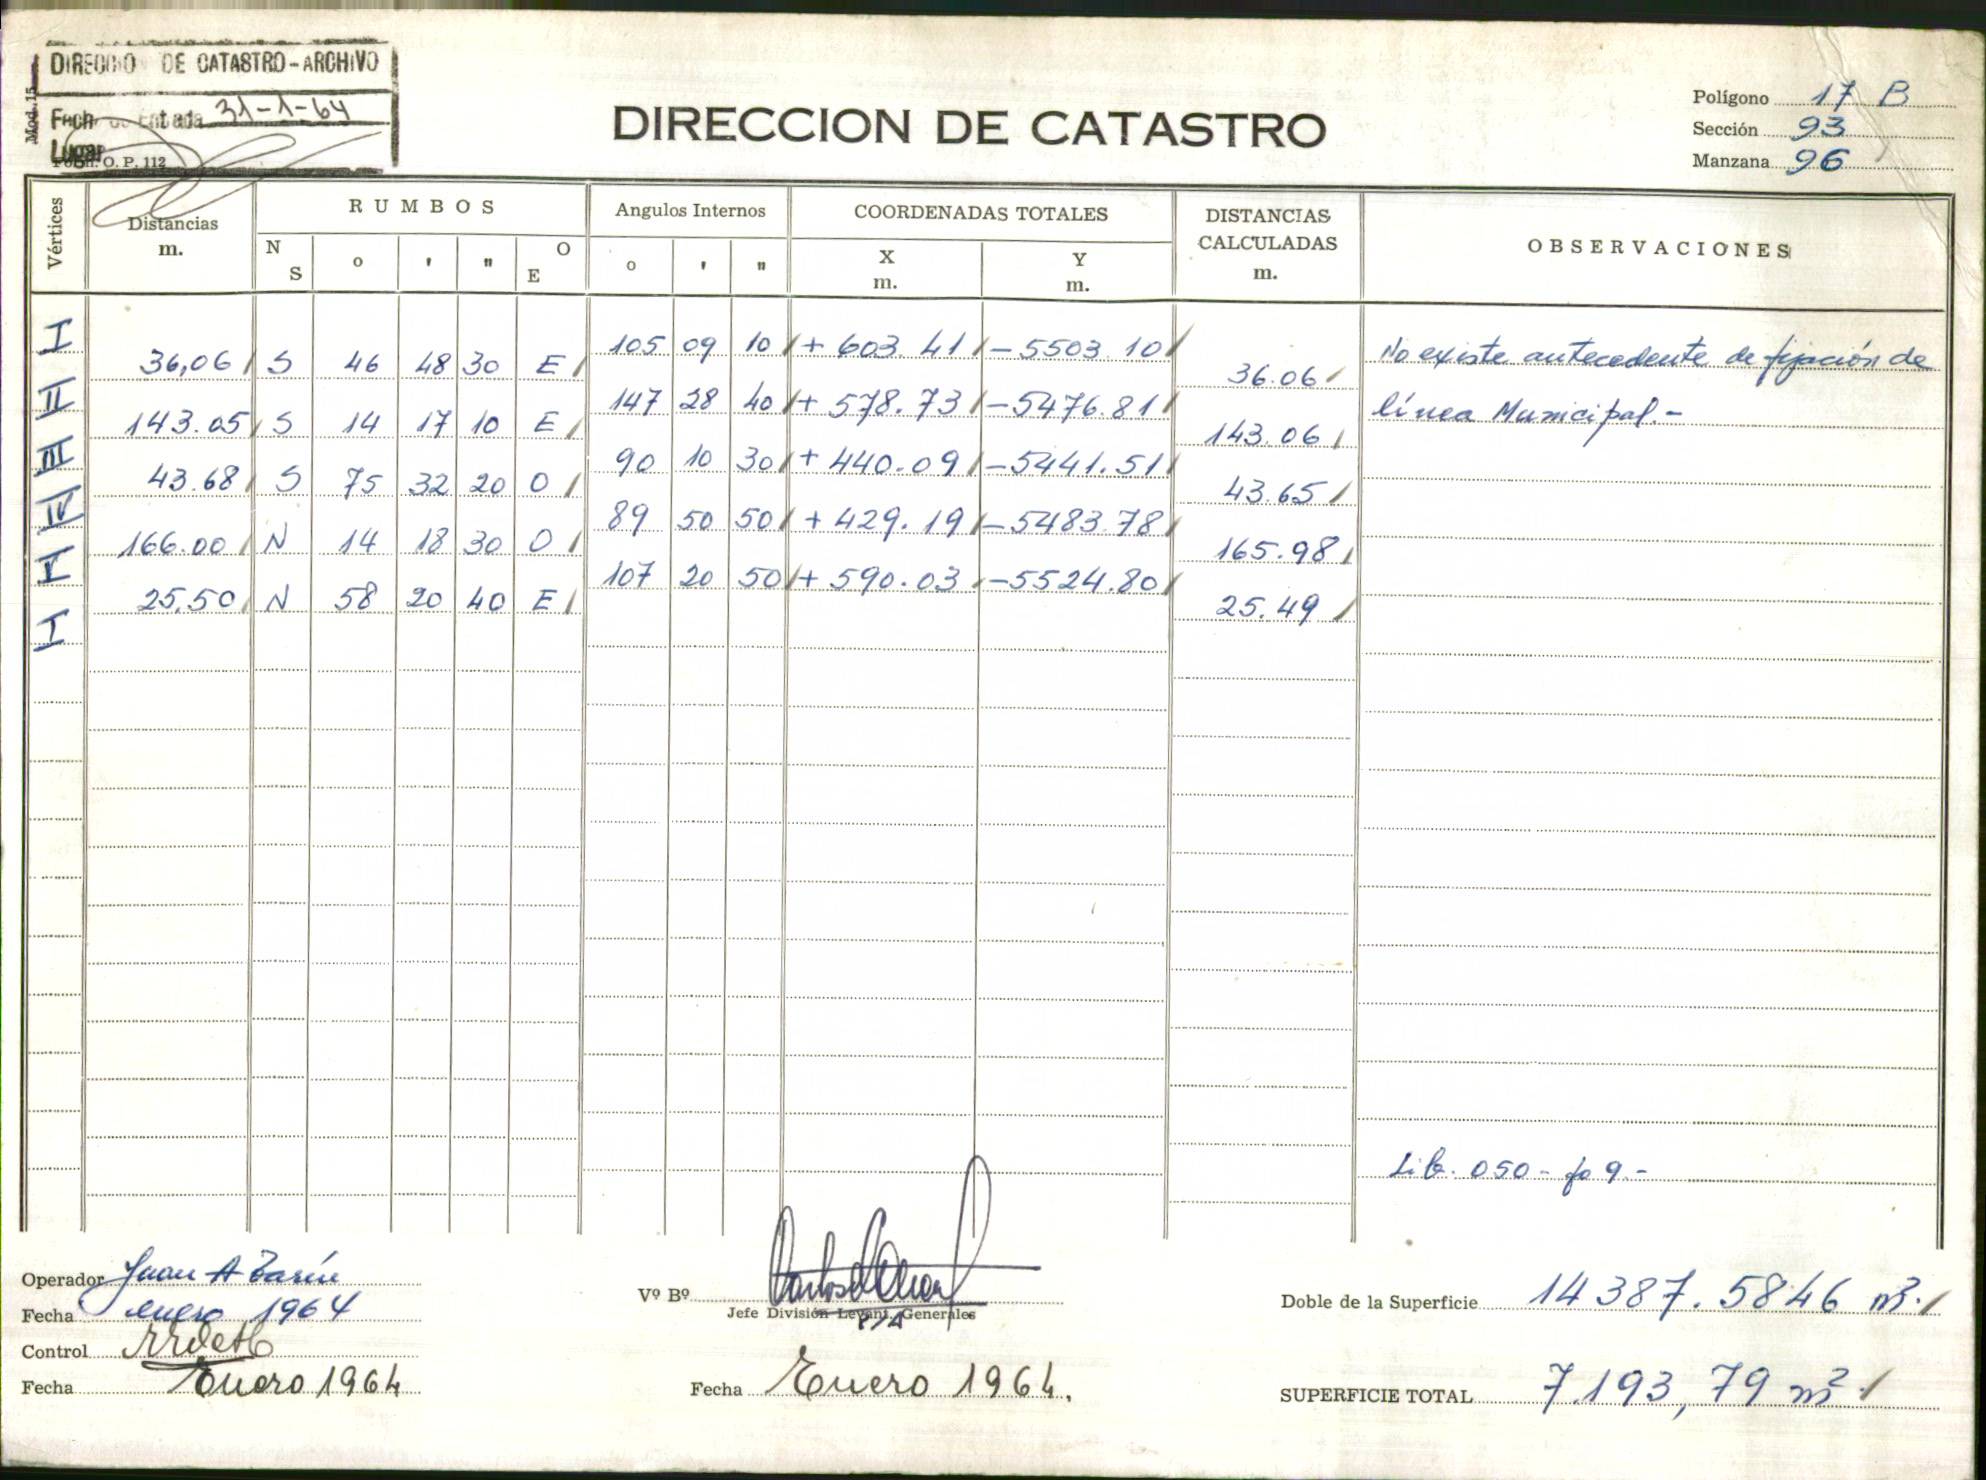 DIRECCIO DE CATASTRO - ARCHIVO
Fech de Entada 31-1-64
Lugar
Mod. 15
O. P. 112
DIRECCION DE CATASTRO
Polígono 17 B
Sección 93
Manzana 96
Vértices
Distancias m.
RUMBOS
N S o ' " O E
Angulos Internos
o ' "
COORDENADAS TOTALES
X m. Y m.
DISTANCIAS CALCULADAS m.
OBSERVACIONES
I 105 09 10 + 603.41 - 5503.10
36,06 S 46 48 30 E 36.06
No existe antecedente de fijación de
II 147 28 40 + 578.73 - 5476.81
143.05 S 14 17 10 E 143.06
línea Municipal.-
III 90 10 30 + 440.09 - 5441.51
43.68 S 75 32 20 O 43.65
IV 89 50 50 + 429.19 - 5483.78
166.00 N 14 18 30 O 165.98
V 107 20 50 + 590.03 - 5524.80
25,50 N 58 20 40 E 25.49
I
Lib. 050 - fo 9.-
Operador Juan A
Fecha enero 1964
Control
Fecha Enero 1964
Vº Bº
Jefe División Levant. Generales
Fecha Enero 1964.
Doble de la Superficie 14387.5846 m².
SUPERFICIE TOTAL 7.193,79 m².